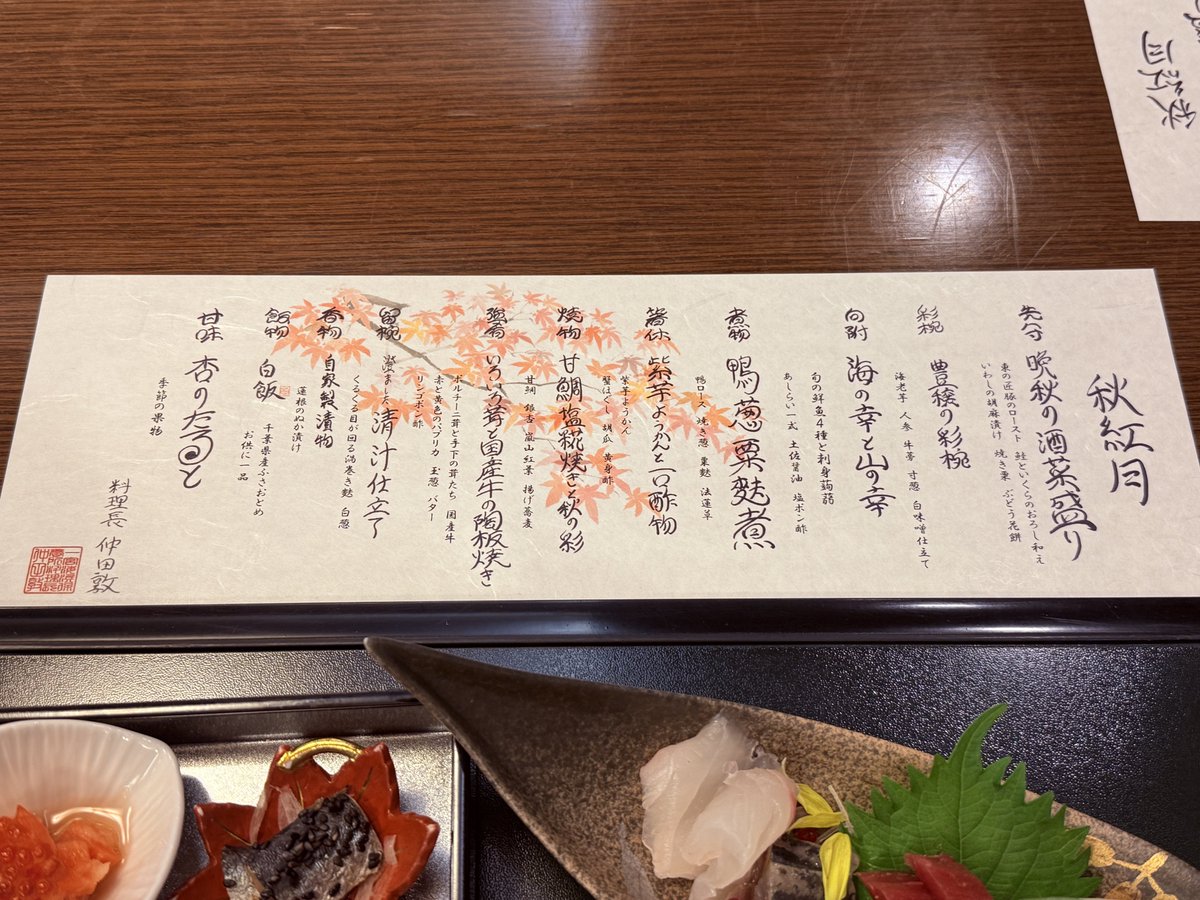 秋紅月
先八寸 晩秋の酒菜盛り
東の匠豚のロースト 鮭といくらのおろし和え
いわしの胡麻漬け 焼き栗 ぶどう花餅
彩椀 豊穣の彩椀
海老芋 人参 牛蒡 寸葱 白味噌仕立て
向附 海の幸と山の幸
旬の鮮魚4種と刺身蒟蒻
あしらい一式 土佐醤油 塩ポン酢
煮物 鴨葱粟麩煮
鴨ロース 焼き葱 粟麩 法蓮草
箸休 紫芋ようかんと一口酢物
紫芋ようかん
蟹ほぐし 胡瓜 黄身酢
焼物 甘鯛塩糀焼きと秋の彩
甘鯛 銀杏 嵐山 紅葉 揚げ蕎麦
強肴 いろいろ茸と国産牛の陶板焼き
ポルチーニ茸と手下の茸たち 国産牛
赤と黄色のパプリカ 玉葱 バター
リンゴポン酢
留椀 澄ました清汁仕立て
くるくる目が回る渦巻き麩 白葱
香物 自家製漬物
蓮根のぬか漬け
飯物 白飯
千葉県産ふさおとめ
お供に一品
甘味 杏のたると
季節の果物
料理長 仲田敦
秋紅月